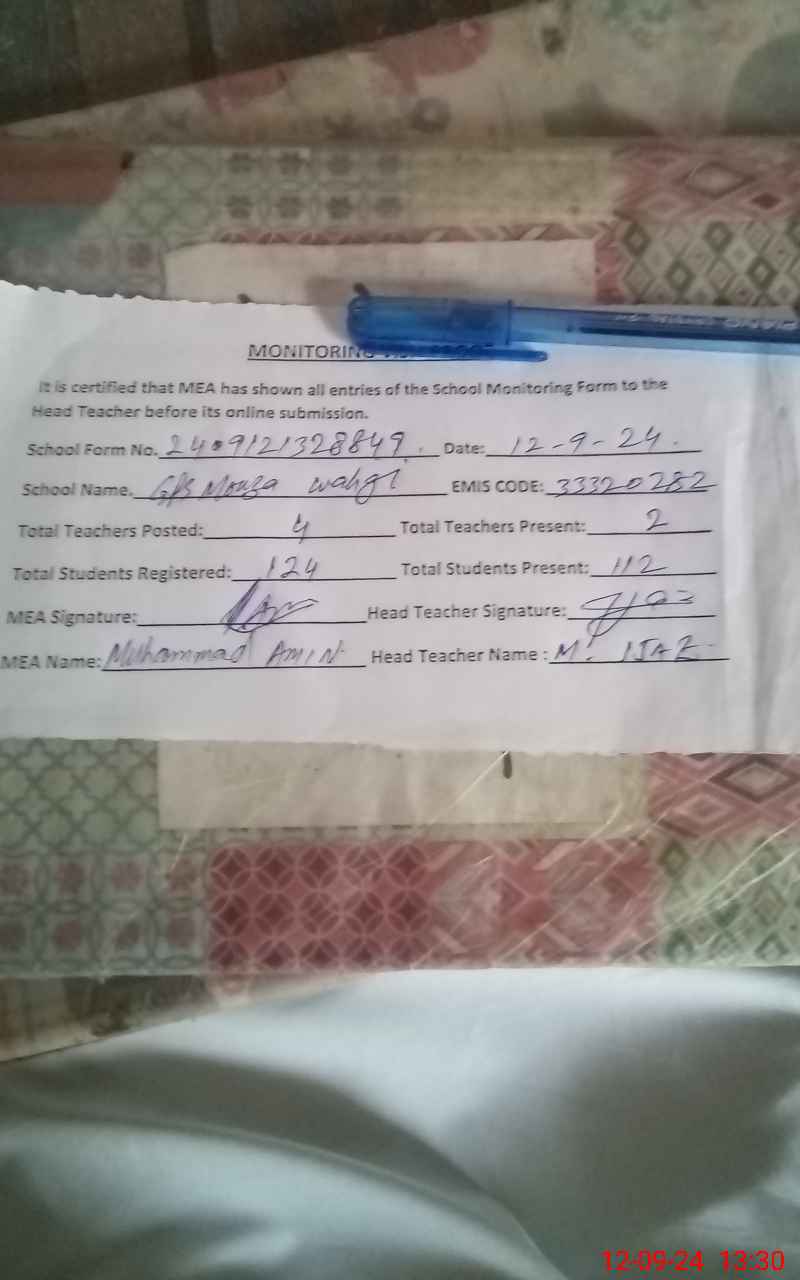 MONITORING
It is certified that MEA has shown all entries of the School Monitoring Form to the
Head Teacher before its online submission.
School Form No. 2409121328849 Date: 12-9-24.
School Name. GPS Mouza wahgi EMIS CODE: 33320282
Total Teachers Posted: 4 Total Teachers Present: 2
Total Students Registered: 124 Total Students Present: 112
MEA Signature: Head Teacher Signature:
MEA Name: Muhammad AMIN Head Teacher Name : M. IJAZ
12-09-24 13:30